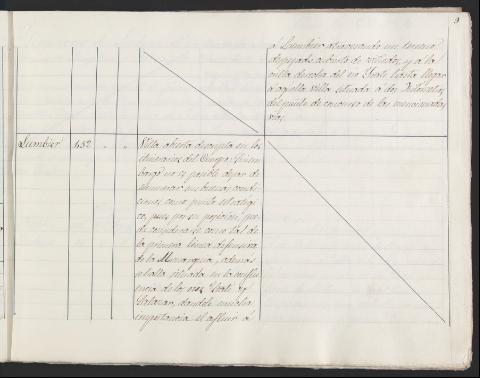 9
á Lumbier atravesando un terreno
despejado
orilla derecha del rio Irati hasta llegar
a aquella Villa situada a dos kilómetros
del punto de concurso de los mencionados
rios.
Lumbier 452 " "
Villa abierta descripta en los
itinerarios del Cuerpo. Sin em-
bargo no es posible dejar de
enumerar sus buenas condi-
ciones como punto estrategi-
co, pues por su posicion, pue-
de considerarse como tal de
la primera linea defensiva
de la Monarquia, ademas
se halla situada en la conflu-
encia de los rios Irati y
Salazar, dandole mucha
importancia el afluir á